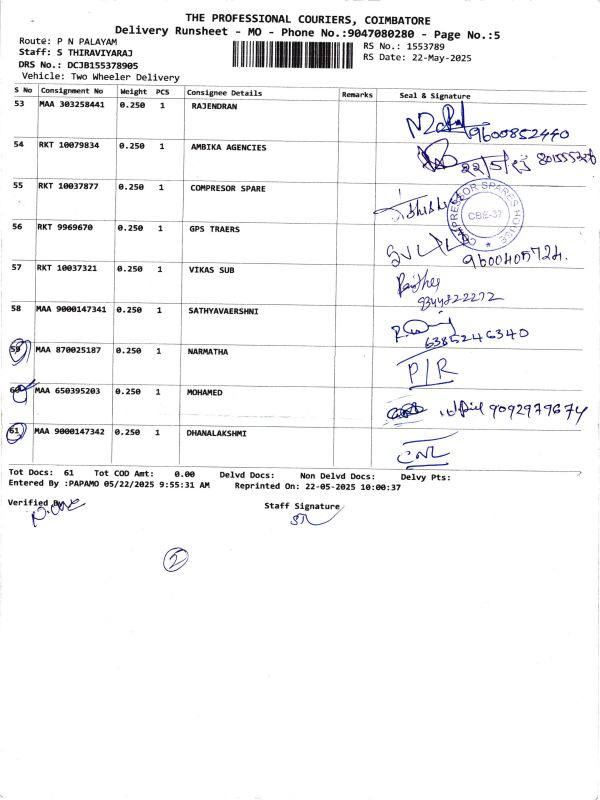 THE PROFESSIONAL COURIERS, COIMBATORE
Delivery Runsheet - MO - Phone No.:9047080280 - Page No.:5
Route: P N PALAYAM
RS No.: 1553789
Staff: S THIRAVIYARAJ
RS Date: 22-May-2025
DRS No.: DCJB155378905
Vehicle: Two Wheeler Delivery
S No Consignment No Weight PCS Consignee Details Remarks Seal & Signature
53 MAA 303258441 0.250 1 RAJENDRAN
9600852440
54 RKT 10079834 0.250 1 AMBIKA AGENCIES
22/5/25
55 RKT 10037877 0.250 1 COMPRESOR SPARE
COMPRESSOR SPARES HOUSE
CBE-37
56 RKT 9969670 0.250 1 GPS TRAERS
9600405724.
57 RKT 10037321 0.250 1 VIKAS SUB
9344822272
58 MAA 9000147341 0.250 1 SATHYAVAERSHNI
6385246340
59 MAA 870025187 0.250 1 NARMATHA
P/R
60 MAA 650395203 0.250 1 MOHAMED
9092979674
61 MAA 9000147342 0.250 1 DHANALAKSHMI
CNL
Tot Docs: 61 Tot COD Amt: 0.00 Delvd Docs: Non Delvd Docs: Delvy Pts:
Entered By :PAPAMO 05/22/2025 9:55:31 AM Reprinted On: 22-05-2025 10:00:37
Verified By
Staff Signature